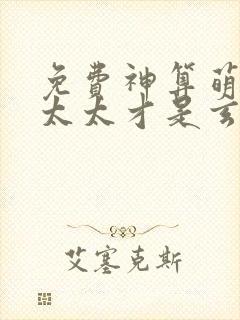 免費神算萌
太太才是玄
艾塞克斯